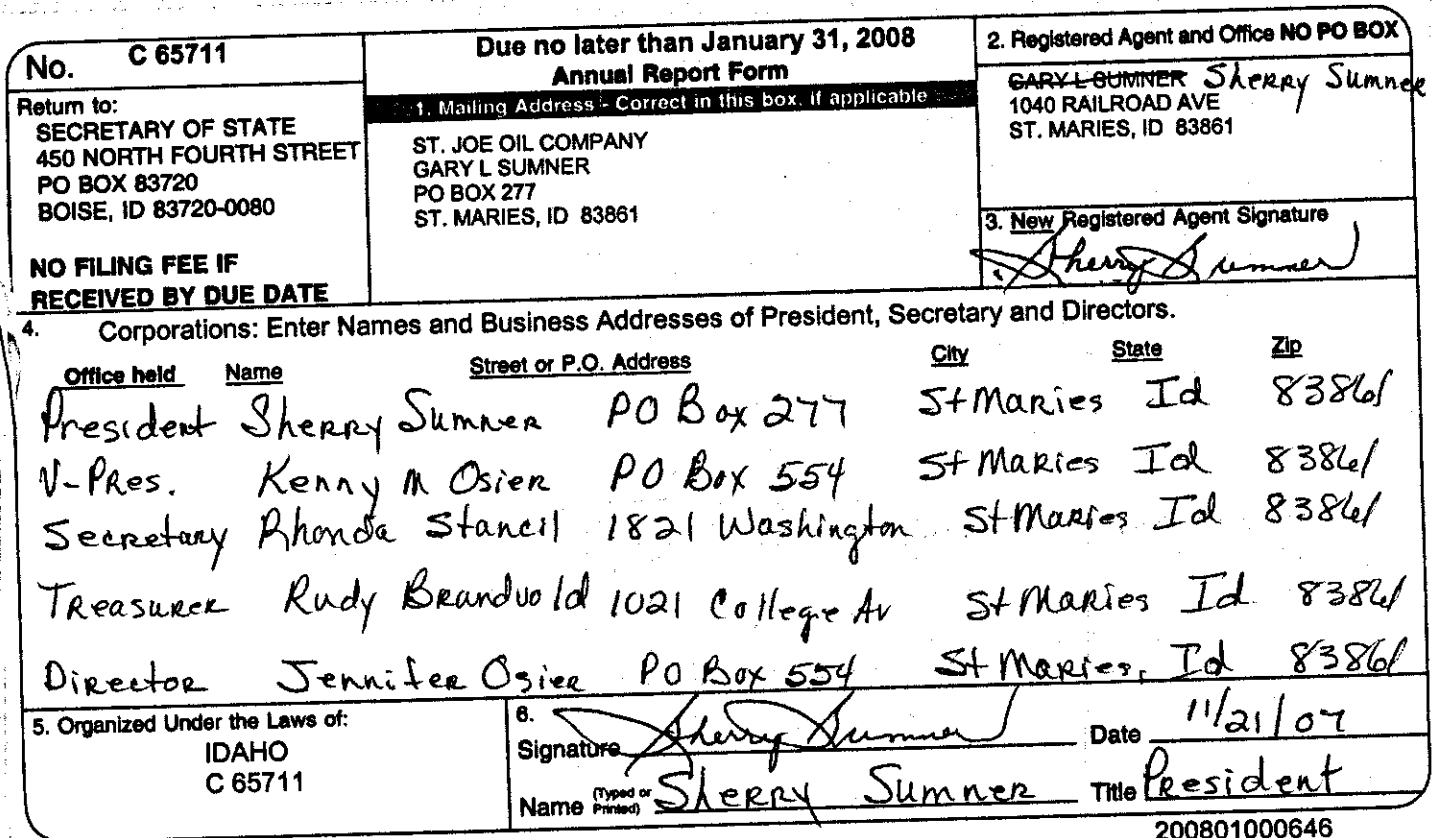 No. C 65711
Return to:
SECRETARY OF STATE
450 NORTH FOURTH STREET
PO BOX 83720
BOISE, ID 83720-0080
NO FILING FEE IF
RECEIVED BY DUE DATE
Due no later than January 31, 2008
Annual Report Form
1. Mailing Address - Correct in this box, if applicable
ST. JOE OIL COMPANY
GARY L SUMNER
PO BOX 277
ST. MARIES, ID 83861
2. Registered Agent and Office NO PO BOX
GARY L SUMNER Sherry Sumner
1040 RAILROAD AVE
ST. MARIES, ID 83861
3. New Registered Agent Signature
Sherry Sumner
4. Corporations: Enter Names and Business Addresses of President, Secretary and Directors.
Office held Name Street or P.O. Address City State Zip
President Sherry Sumner PO Box 277 St Maries Id 83861
V-Pres. Kenny M Osier PO Box 554 St Maries Id 83861
Secretary Rhonda Stancil 1821 Washington St Maries Id 83861
Treasurer Rudy Brandvold 1021 College Av St Maries Id 83861
Director Jennifer Osier PO Box 554 St Maries, Id 83861
5. Organized Under the Laws of:
IDAHO
C 65711
6.
Signature Sherry Sumner Date 11/21/07
Name (Typed or Printed) Sherry Sumner Title President
200801000646